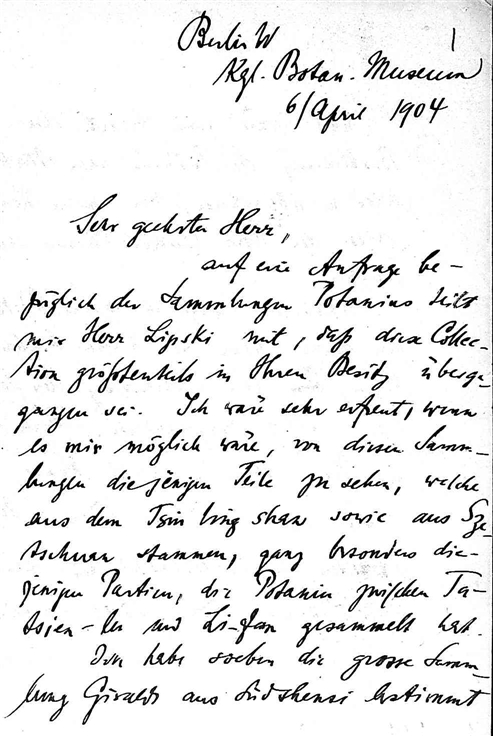 Berlin W
1
Kgl. Botan. Museum
6/April 1904
Sehr geehrter Herr,
auf eine Anfrage be-
züglich der Sammlungen Potanins teilt
mir Herr Lipski mit, daß diese Collec-
tion größtenteils in Ihren Besitz überge-
gangen sei. Ich wäre sehr erfreut, wenn
es mir möglich wäre, von diesen Samm-
lungen diejenigen Teile zu sehen, welche
aus dem Tsin ling shan sowie aus Sze-
tschuan stammen, ganz besonders die-
jenigen Partien, die Potanin zwischen Ta-
tsien-lu und Li-fan gesammelt hat.
Ich habe soeben die grosse Samm-
lung Giraldis aus Südshensi bestimmt